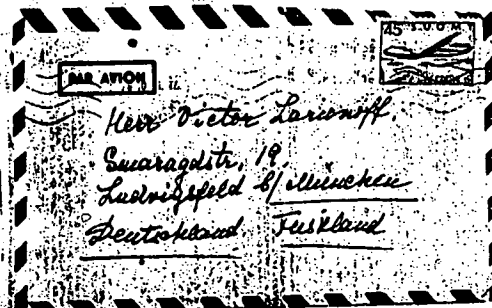 45 SUOMI
PAR AVION
Herr Victor Larionoff.
Smaragdstr. 19.
Ludwigsfeld b/München
Deutschland Tuskland